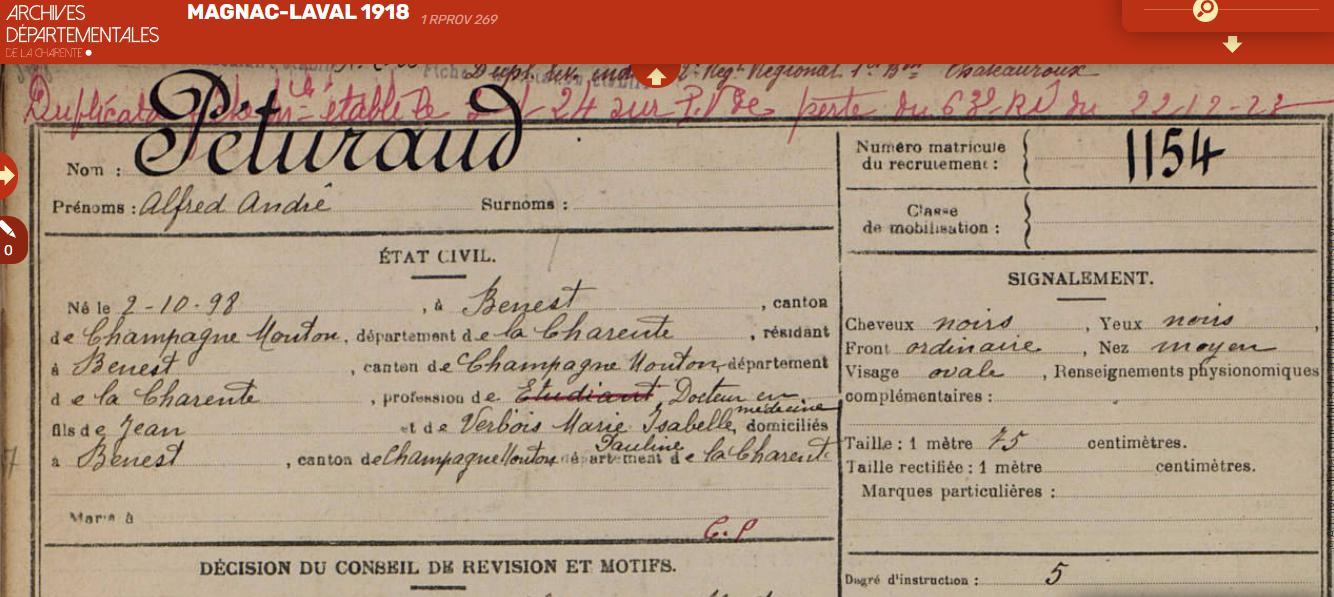 ARCHIVES
DÉPARTEMENTALES
DE LA CHARENTE
MAGNAC-LAVAL 1918 1 RPROV 269
0
Régional 1er Bon Chateauroux
Duplicata établi le 24 sur P.V de perte du 63e RI du 22-12-23
Nom : Péturaud
Prénoms : Alfred André Surnoms :
Numéro matricule
du recrutement : 1154
Classe
de mobilisation :
ÉTAT CIVIL.
Né le 2-10-98, à Benest, canton
de Champagne Mouton, département de la Charente, résidant
à Benest, canton de Champagne Mouton, département
de la Charente, profession de Etudiant, Docteur en médecine
fils de Jean et de Verbois Marie Isabelle Pauline, domiciliés
à Benest, canton de Champagne Mouton département de la Charente
Marié à
C.P
DÉCISION DU CONSEIL DE REVISION ET MOTIFS.
SIGNALEMENT.
Cheveux noirs, Yeux noirs,
Front ordinaire, Nez moyen
Visage ovale, Renseignements physionomiques
complémentaires :
Taille : 1 mètre 75 centimètres.
Taille rectifiée : 1 mètre centimètres.
Marques particulières :
Degré d'instruction : 5